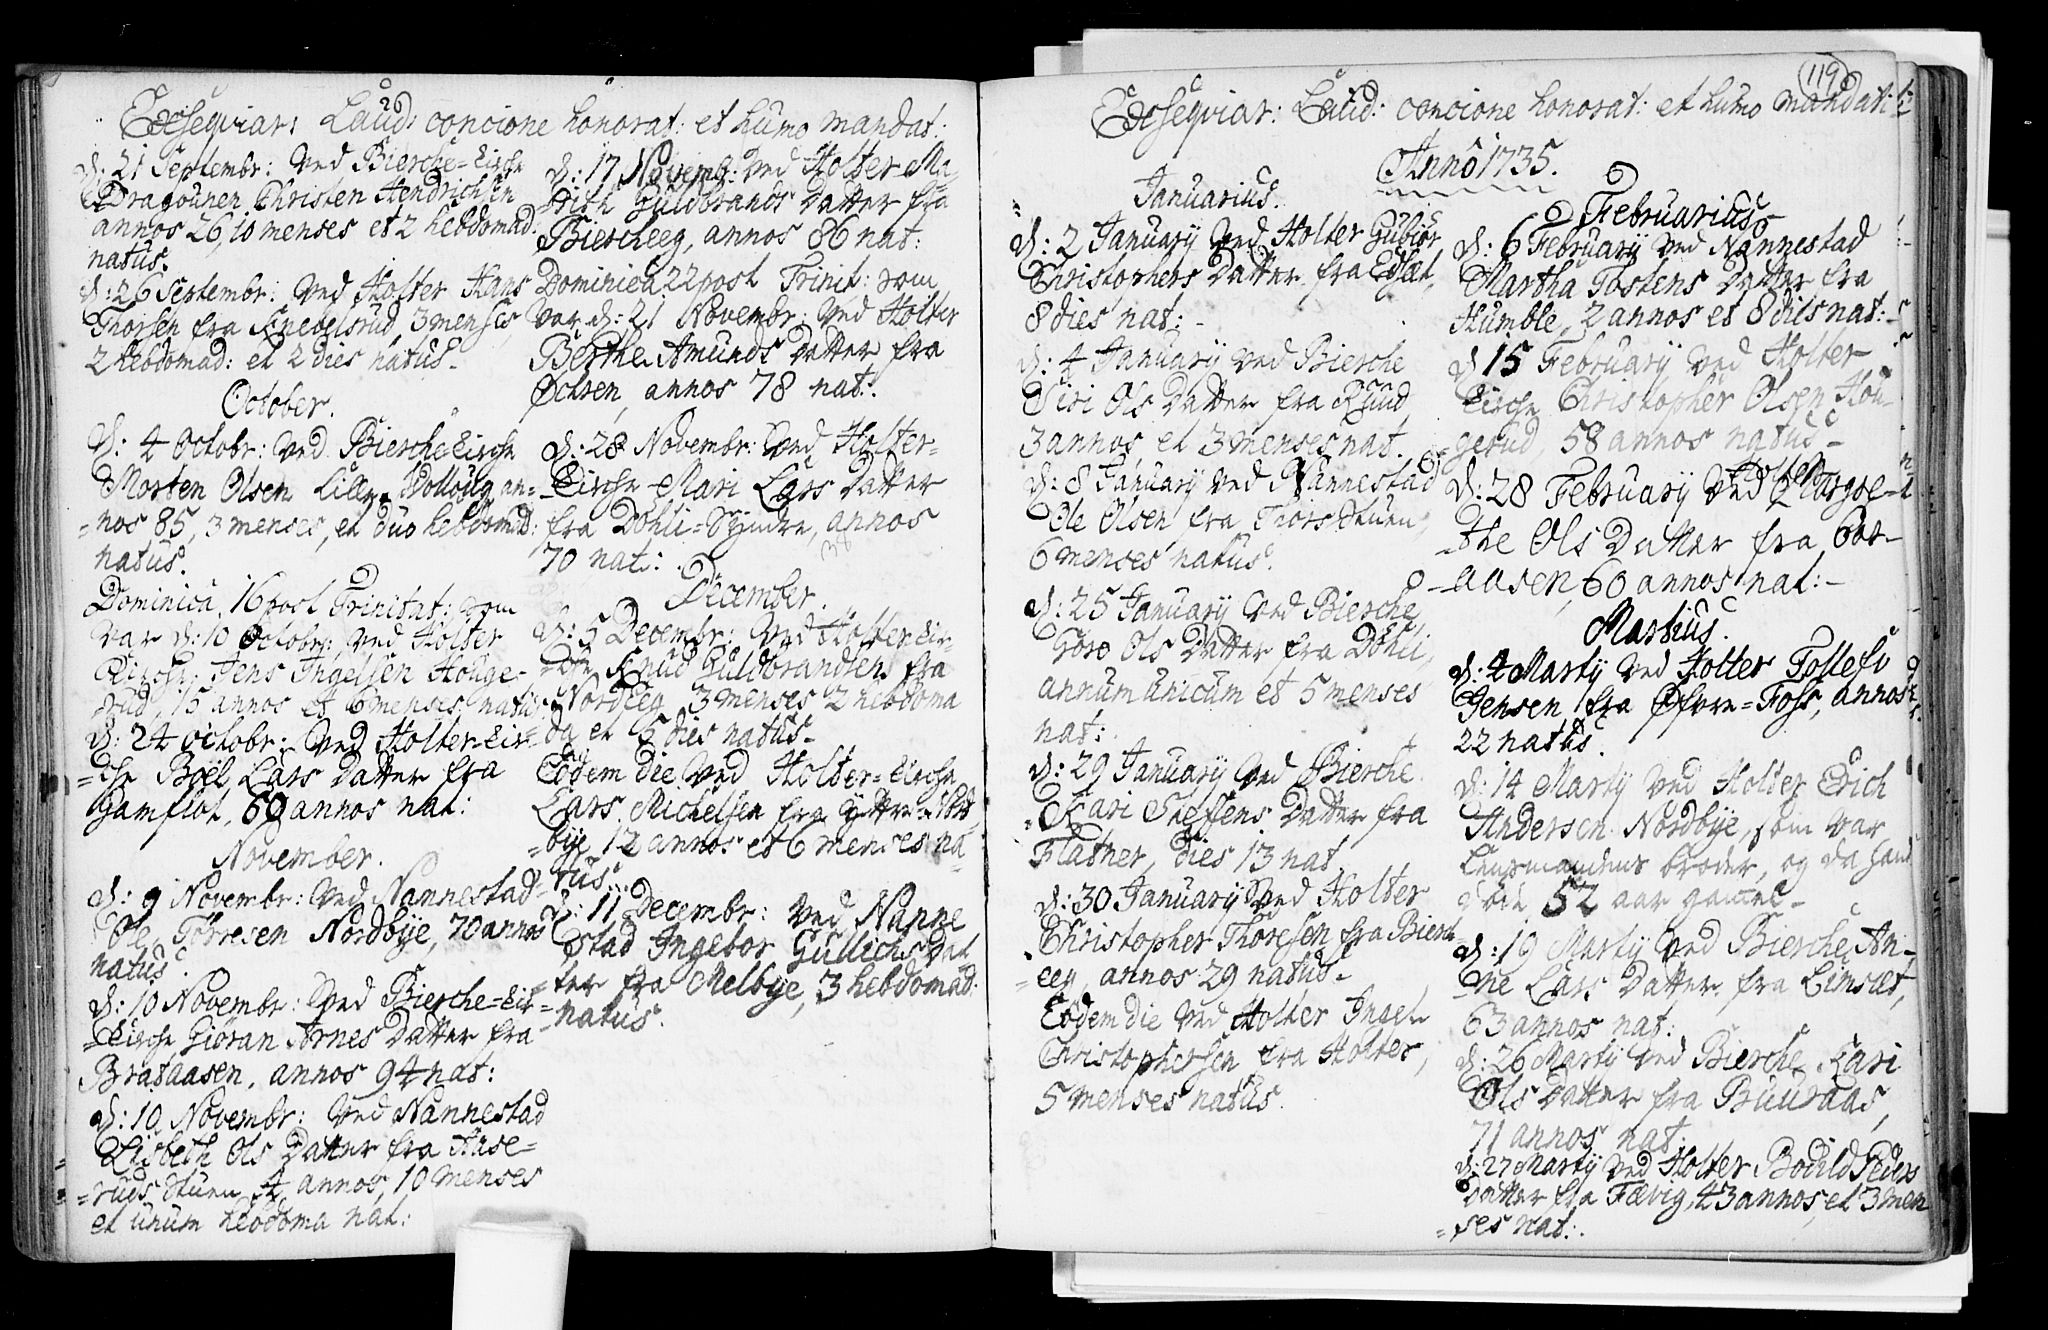 Exseqviar: Laud: concione honorat: et humo mandat:
d: 21 Septembr: ved Bierche=Kirche
Dragounen Christen Hendrichsen
annos 26, 10 menses et 2 hebdomad:
natus.
d: 26 Septembr: ved Holter Hans
Thorsen fra Knebelsrud, 3 menses,
2 hebdomad: et 2 dies natus.
October.
d: 4 Octobr: ved Bierche Kirche
Morten Olsen Lille an=
=nos 85, 3 menses, et duo hebdomad:
natus.
Dominica 16 post Trinitat: som
var d: 10 Octobr: ved Holter
Kirche Jens Ingelsen Houge-
rud, 15 annos et 6 menses natus.
d: 24 octobr: ved Holter Kir=
=che Boel Lars Datter fra
Gamflot, 60 annos nat:
November.
d: 9 Novembr: ved Nannestad
Ole Torresen Nordbye, 70 annos
natus.
d: 10 Novembr: ved Bierche=Kir=
=Kirche Giøran Arnes Datter fra
Brataasen, annos 94 nat:
d: 10 Novembr: ved Nannestad
Lisbeth Ols Datter fra Aase=
=ruds Stuen 4 annos, 10 menses
et unum hebdoma nat:
d: 17 Novemb: ved Holter Ma=
rith Guldbrands Datter fra
Biercheeg, annos 86 nat:
Dominica 22 post Trinit: som
var d: 21 Novembr: ved Holter
Berthe Amunds Datter fra
Ochren, annos 78 nat:
d: 28 Novembr: ved Holter=
=Kirche Mari Lars Datter
fra Dohli=Syndre, annos
70 nat:
December.
d: 5 Decembr: ved Holter Kir=
=che Knud Guldbrandsen fra
Nordeeg 3 menses 2 hebdoma
da et 5 dies natus.
Eodem die ved Holter=Kirche
Lars Michelsen fra Yttre Nord
=bye 12 annos et 6 menses na
tus.
d: 11 Decembr: ved Nanne
stad Ingebor Gullichs Dat
=ter fra Melbye, 3 hebdomad:
=natus.
119
Exseqviar: Laud: concione honorat: et humo mandati
Anno 1735.
Januarius.
d: 2 January ved Holter Gubiør
Christophers Datter fra Edsæt,
8 dies nat:
d: 4 January ved Bierche
Siri Ols Datter fra Ruud
3 annos et 3 menses nat.
d: 8 January ved Nannestad
Ole Olsen fra Thorsstuen,
6 menses natus.
d: 25 January ved Bierche
Goro Ols Datter fra Dohli,
annum unicum et 5 menses
nat:
d: 29 January ved Bierche
Kari Steffens Datter fra
Flatner, dies 13 nat
d: 30 January ved Holter
Christopher Thoresen fra Bierch
=eeg, annos 29 natus.
Eodem die ved Holter Ingel
Christophersen fra Holter,
5 menses natus.
Februarius
d: 6 February ved Nannestad
Martha Tostens Datter fra
Humble, 2 annos et 8 dies nat:
d 15 February ved Holter
Kirche Christopher Olsen Hou-
gerud, 58 annos natus
d: 28 February ved Holter Margre-
-the Ols Datter fra
-aasen, 60 annos nat:
Martius.
d: 4 Marty ved Holter Tollef
Jensen fra Øfvre=Foss, annos
22 natus.
d: 14 Marty ved Holter Erich
Andersen Nordbye, som var
Lensmandens broder, og da hand
døde 52 aar gammel
d: 19 Marty ved Bierche An-
-ne Lars Datter fra Limsæt,
63 annos nat:
d: 26 Marty ved Bierche Kari
Ols Datter fra Buuraas,
71 annos nat:
d: 27 Marty ved Holter Bodild Peders
Datter fra Fævig, 43 annos, et 3 men
=ses nat: